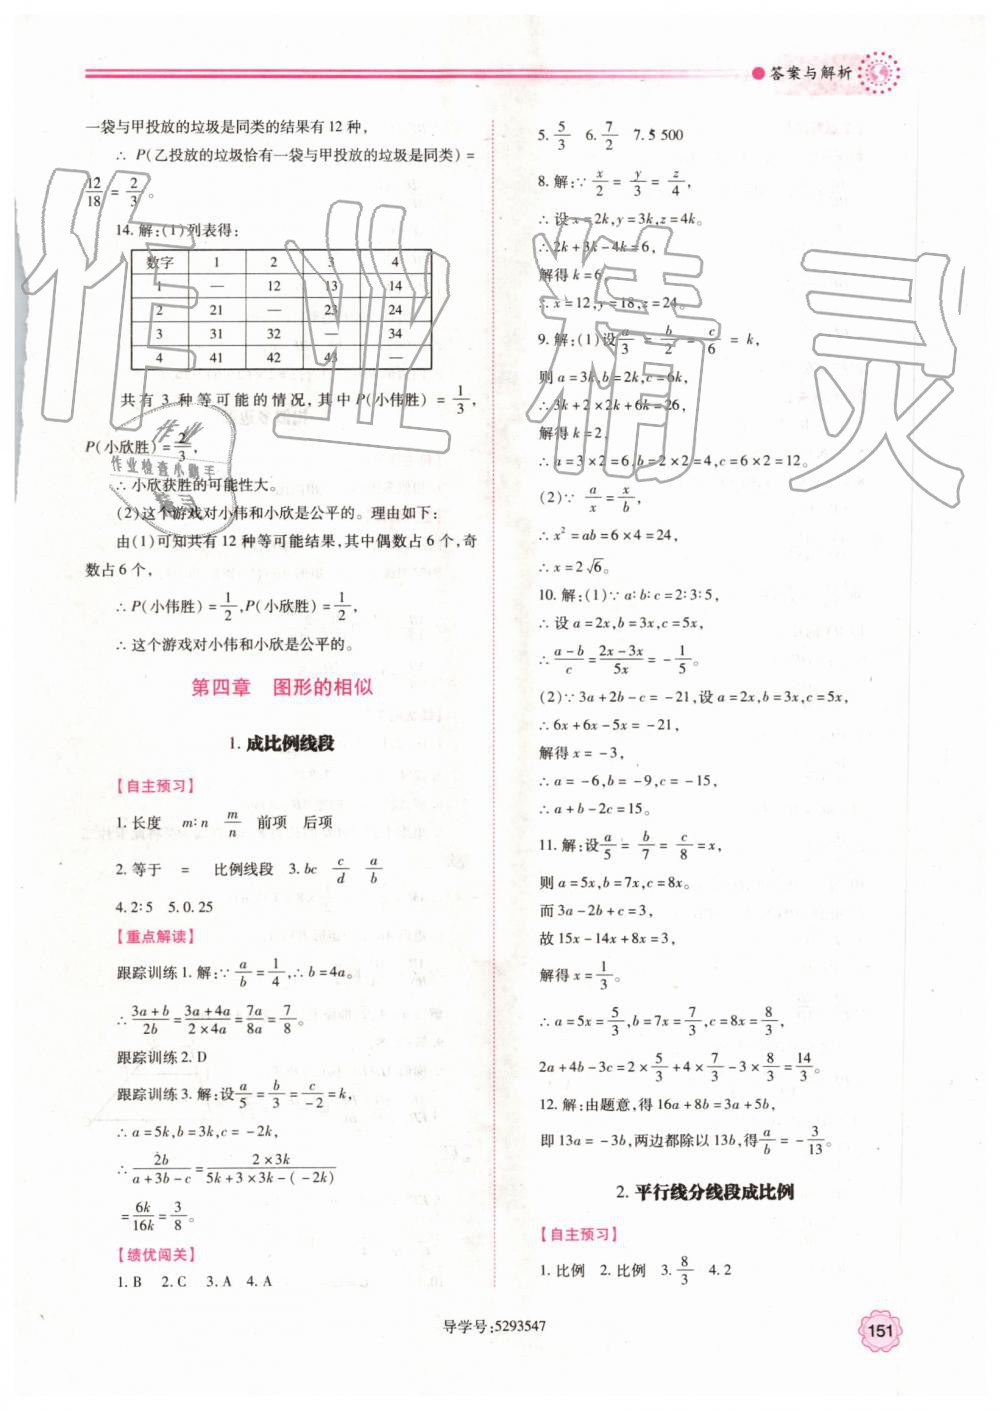 答案与解析
一袋与甲投放的垃圾是同类的结果有 12 种，
∴ P(乙投放的垃圾恰有一袋与甲投放的垃圾是同类) =
12/18 = 2/3。
14. 解:(1)列表得:
数字 1 2 3 4
1 — 12 13 14
2 21 — 23 24
3 31 32 — 34
4 41 42 43 —
共有 3 种等可能的情况，其中 P(小伟胜) = 1/3，
P(小欣胜) = 2/3，
∴ 小欣获胜的可能性大。
(2)这个游戏对小伟和小欣是公平的。理由如下：
由(1)可知共有 12 种等可能结果，其中偶数占 6 个，奇
数占 6 个，
∴ P(小伟胜) = 1/2，P(小欣胜) = 1/2，
∴ 这个游戏对小伟和小欣是公平的。
第四章 图形的相似
1. 成比例线段
【自主预习】
1. 长度 m∶n m/n 前项 后项
2. 等于 = 比例线段 3. bc c/d a/b
4. 2∶5 5. 0.25
【重点解读】
跟踪训练 1. 解:∵ a/b = 1/4，∴ b = 4a。
∴ (3a+b)/2b = (3a+4a)/(2×4a) = 7a/8a = 7/8。
跟踪训练 2. D
跟踪训练 3. 解:设 a/5 = b/3 = c/-2 = k，
∴ a = 5k，b = 3k，c = -2k，
∴ 2b/(a+3b-c) = (2×3k)/(5k+3×3k-(-2k))
= 6k/16k = 3/8。
【绩优闯关】
1. B 2. C 3. A 4. A
5. 5/3 6. 7/2 7. 5 500
8. 解:∵ x/2 = y/3 = z/4，
∴ 设 x = 2k，y = 3k，z = 4k。
∴ 2k + 3k - 4k = 6，
解得 k = 6，
∴ x = 12，y = 18，z = 24。
9. 解:(1)设 a/3 = b/2 = c/6 = k，
则 a = 3k，b = 2k，c = 6k，
∴ 3k + 2×2k + 6k = 26，
解得 k = 2，
∴ a = 3×2 = 6，b = 2×2 = 4，c = 6×2 = 12。
(2)∵ a/x = x/b，
∴ x² = ab = 6×4 = 24，
∴ x = 2√6。
10. 解:(1)∵ a∶b∶c = 2∶3∶5，
∴ 设 a = 2x，b = 3x，c = 5x，
∴ (a-b)/c = (2x-3x)/5x = -1/5。
(2)∵ 3a + 2b - c = -21，设 a = 2x，b = 3x，c = 5x，
∴ 6x + 6x - 5x = -21，
解得 x = -3，
∴ a = -6，b = -9，c = -15，
∴ a + b - 2c = 15。
11. 解:设 a/5 = b/7 = c/8 = x，
则 a = 5x，b = 7x，c = 8x。
而 3a - 2b + c = 3，
故 15x - 14x + 8x = 3，
解得 x = 1/3。
∴ a = 5x = 5/3，b = 7x = 7/3，c = 8x = 8/3，
2a + 4b - 3c = 2×5/3 + 4×7/3 - 3×8/3 = 14/3。
12. 解:由题意，得 16a + 8b = 3a + 5b，
即 13a = -3b，两边都除以 13b，得 a/b = -3/13。
2. 平行线分线段成比例
【自主预习】
1. 比例 2. 比例 3. 8/3 4. 2
导学号:5293547
151
作业精灵
作业
作业检查小助手
精灵